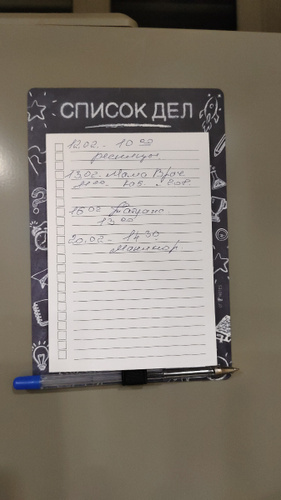 СПИСОК ДЕЛ
12.02. - 10 00
ресницы
13.02. Мама Врач
11 00 каб.
16.02
13 00
20.02 - 14 30
маникюр